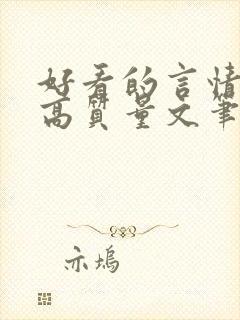 好看的言情
高质量文笔
亦坞